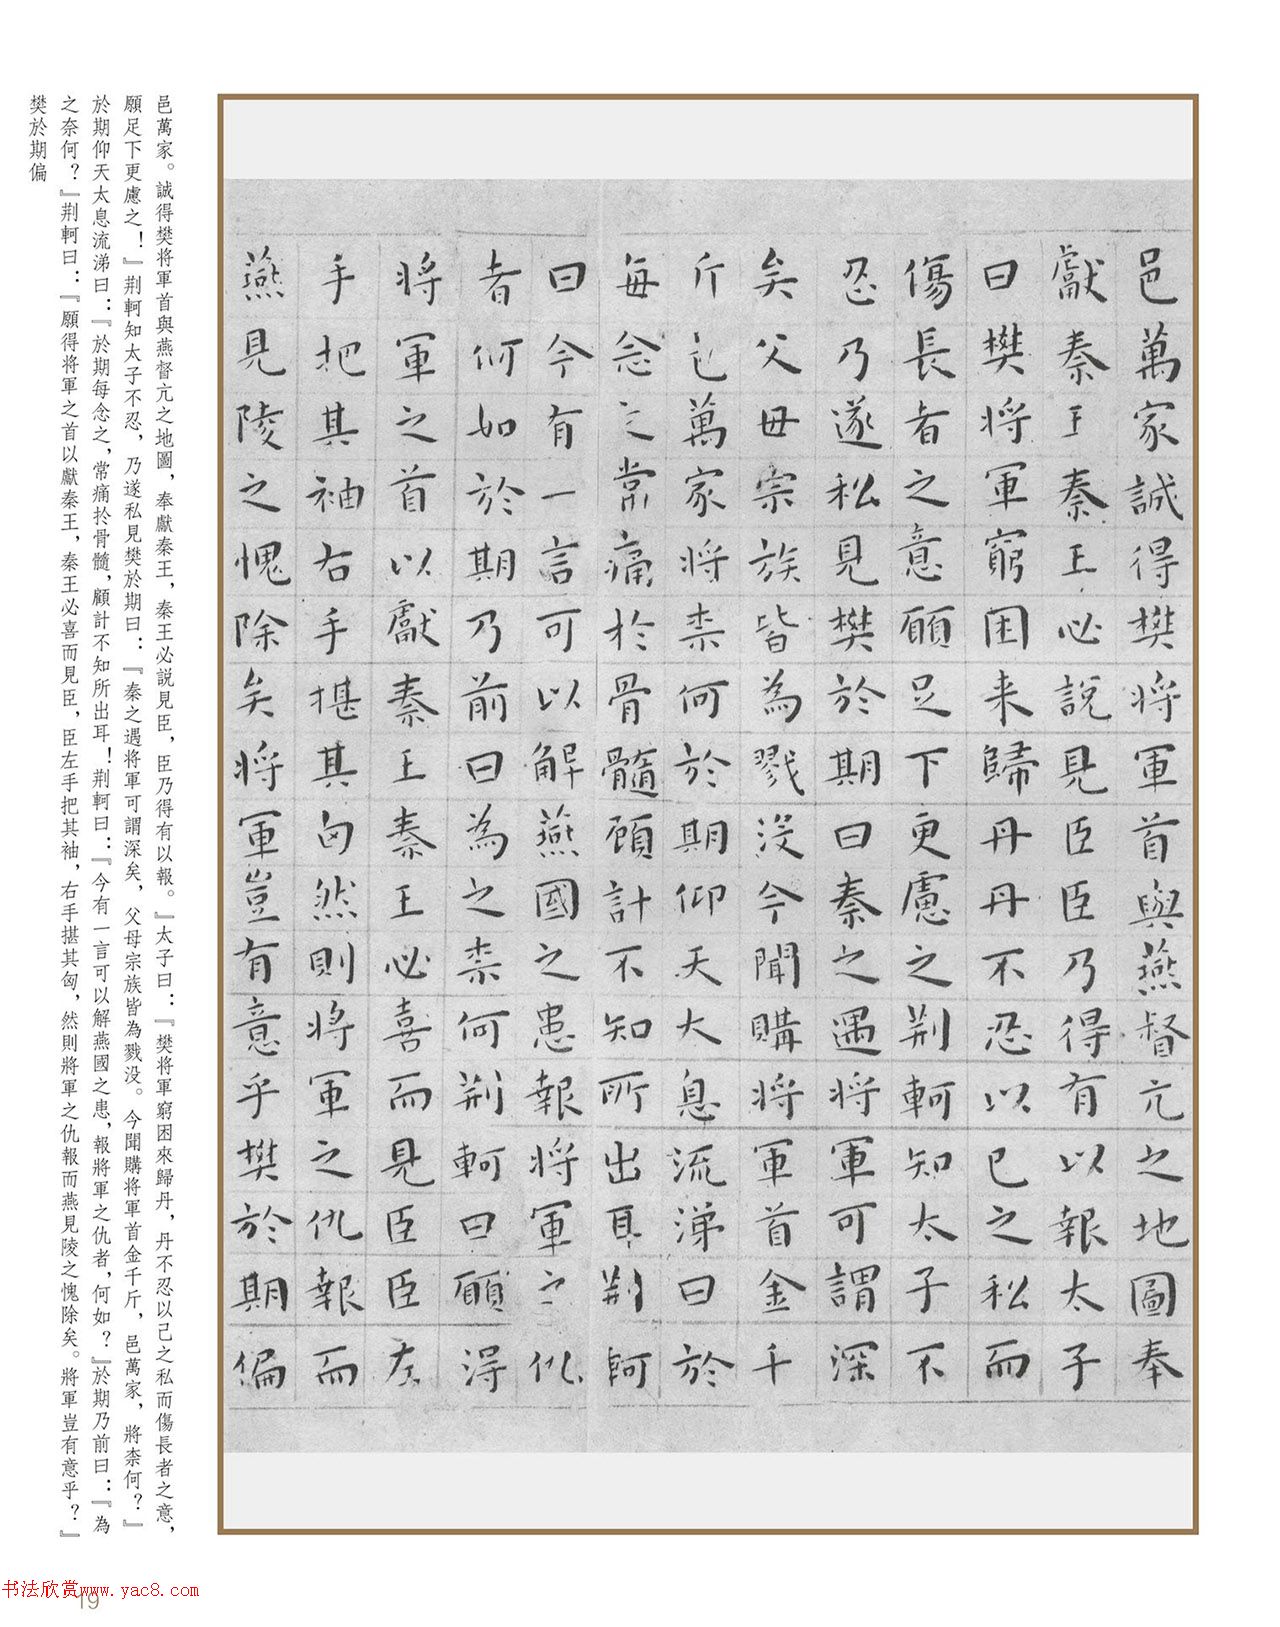 邑萬家誠得樊将軍首與燕督亢之地圖奉
獻秦王秦王必說見臣臣乃得有以報太子
曰樊将軍窮困来歸丹丹不忍以己之私而
傷長者之意願足下更慮之荆軻知太子不
忍乃遂私見樊於期曰秦之遇将軍可謂深
矣父母宗族皆為戮没今聞購将軍首金千
斤邑萬家将柰何於期仰天大息流涕曰於
每念之常痛於骨髓顧計不知所出耳荆軻
曰今有一言可以解燕國之患報将軍之仇
者何如於期乃前曰為之柰何荆軻曰願得
将軍之首以獻秦王秦王必喜而見臣臣左
手把其袖右手揕其匈然則将軍之仇報而
燕見陵之愧除矣将軍豈有意乎樊於期偏
邑萬家。誠得樊將軍首與燕督亢之地圖，奉獻秦王，秦王必説見臣，臣乃得有以報。』太子曰：『樊將軍窮困來歸丹，丹不忍以己之私而傷長者之意，
願足下更慮之！』荆軻知太子不忍，乃遂私見樊於期曰：『秦之遇將軍可謂深矣，父母宗族皆為戮没。今聞購將軍首金千斤，邑萬家，將柰何？』
於期仰天太息流涕曰：『於期每念之，常痛於骨髓，顧計不知所出耳！荆軻曰：『今有一言可以解燕國之患，報將軍之仇者，何如？』於期乃前曰：『為
之奈何？』荆軻曰：『願得将軍之首以獻秦王，秦王必喜而見臣，臣左手把其袖，右手揕其匈，然則將軍之仇報而燕見陵之愧除矣。將軍豈有意乎？』
樊於期偏
书法欣赏www.yac8.com
19